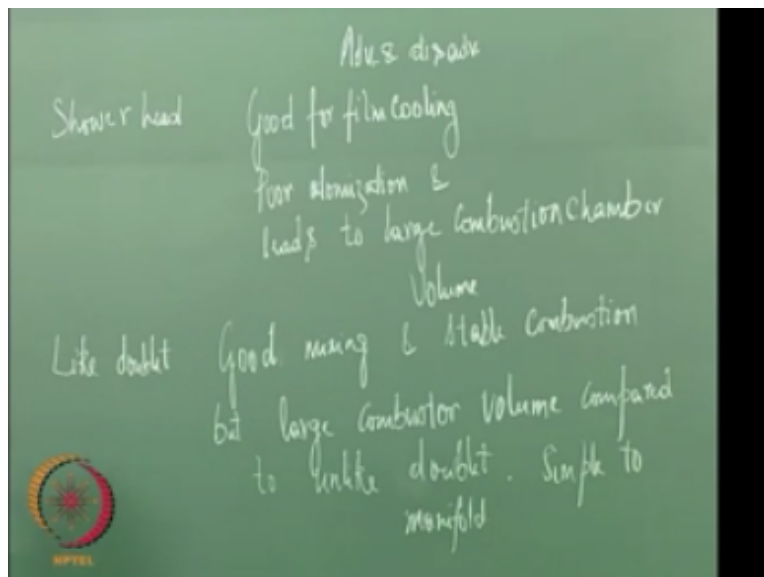 Adv & disadv
Shower head Good for film cooling
Poor atomization &
leads to large combustion chamber
Volume
Like doublet Good mixing & stable combustion
but large combustor volume compared
to unlike doublet. Simple to
manifold
NPTEL